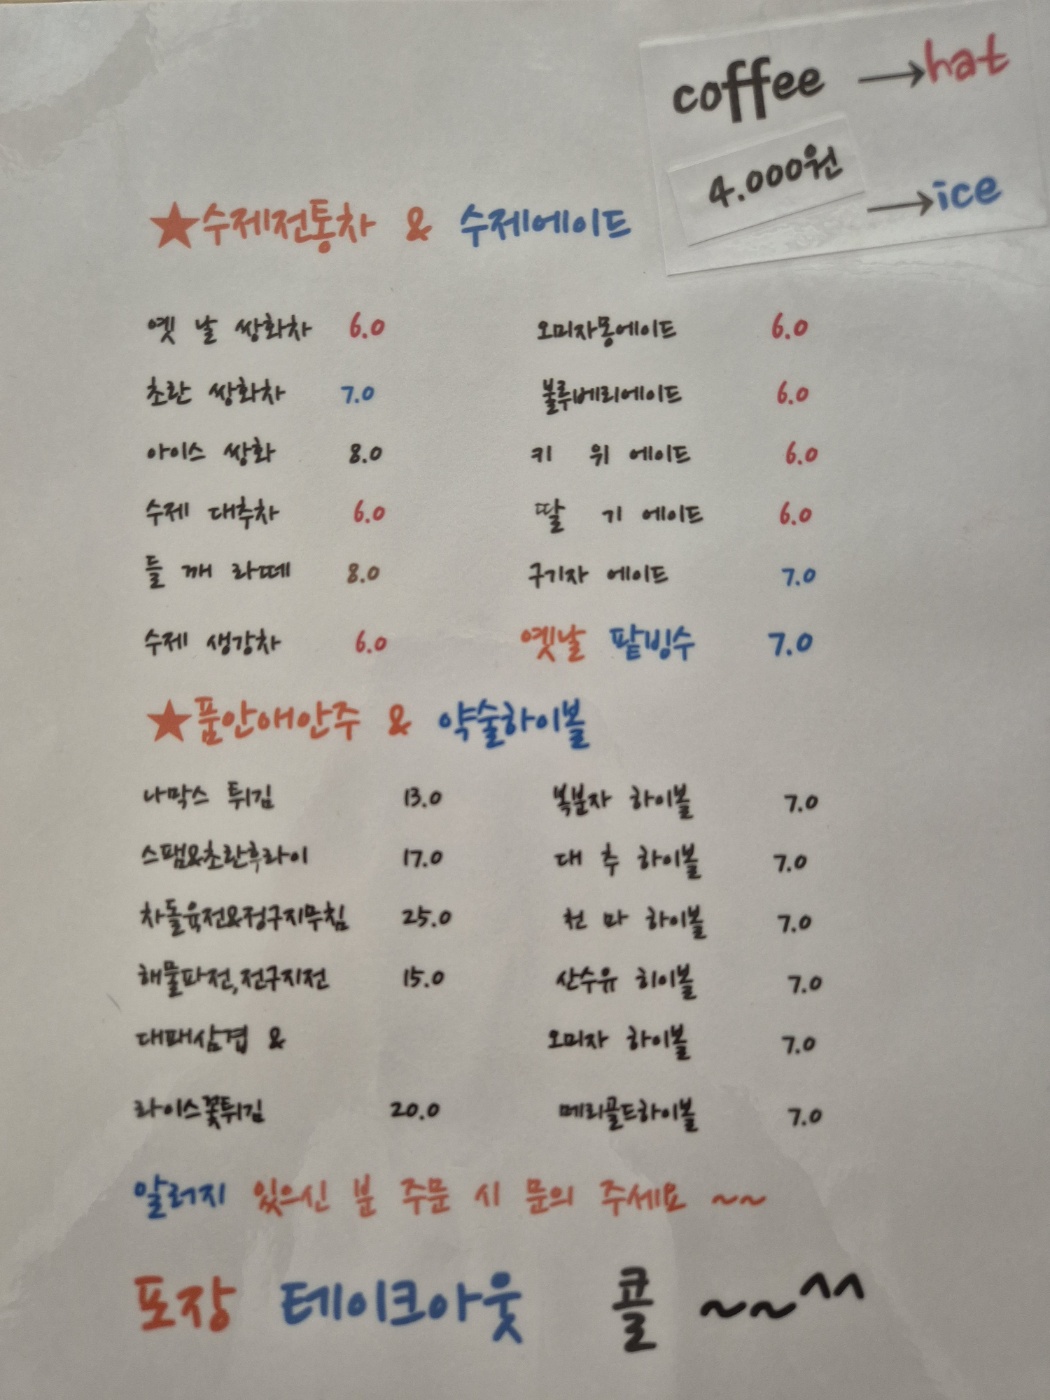 coffee →hat
4.000원 →ice
★수제전통차 & 수제에이드
옛 날 쌍화차 6.0 오미자몽에이드 6.0
초란 쌍화차 7.0 불루베리에이드 6.0
아이스 쌍화 8.0 키 위 에이드 6.0
수제 대추차 6.0 딸 기 에이드 6.0
들 깨 라떼 8.0 구기자 에이드 7.0
수제 생강차 6.0 옛날 팥빙수 7.0
★품안애안주 & 약술하이볼
나막스 튀김 13.0 복분자 하이볼 7.0
스팸&초란후라이 17.0 대 추 하이볼 7.0
차돌육전&정구지무침 25.0 천 마 하이볼 7.0
해물파전,전구지전 15.0 산수유 히이볼 7.0
대패삼겹 & 오미자 하이볼 7.0
라이스꽃튀김 20.0 메리골드하이볼 7.0
알러지 있으신 분 주문 시 문의 주세요 ~~
포장 테이크아웃 콜 ~~^^